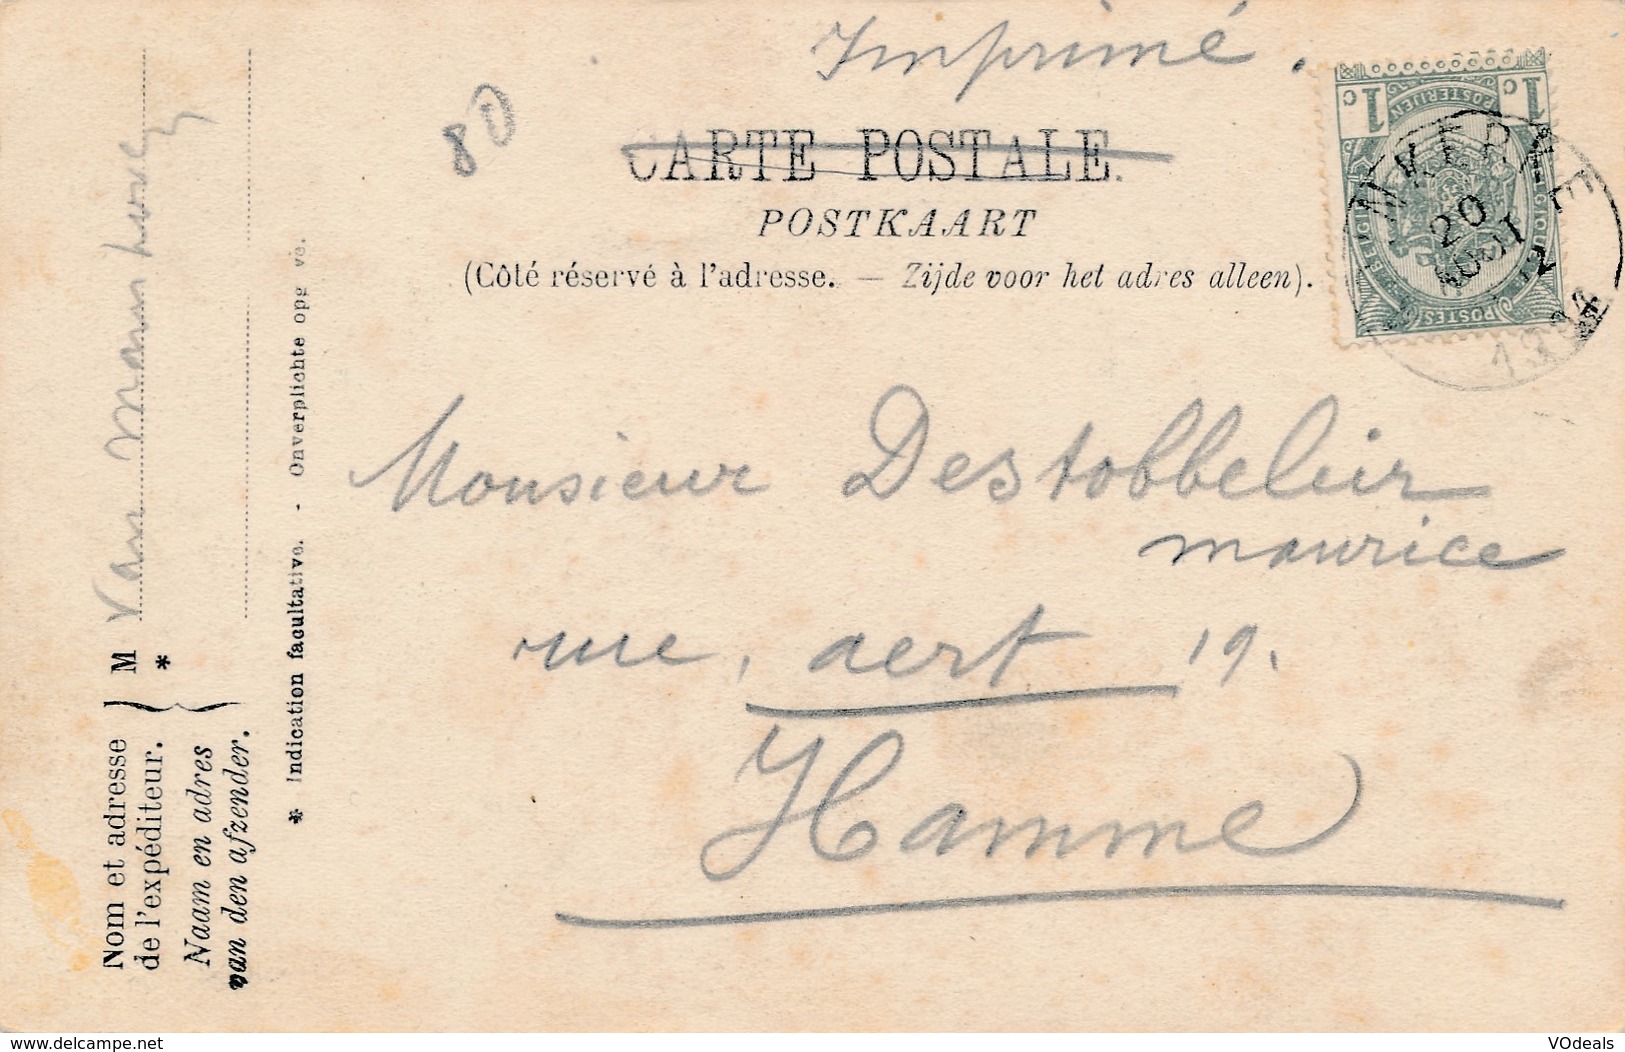 Imprimé.
80
CARTE POSTALE.
POSTKAART
(Côté réservé à l'adresse. — Zijde voor het adres alleen).
1 c 1 c
POSTERIJEN
BELGIE BELGIQUE
POSTES
20
AOUT
Monsieur Destobbeleir
maurice
rue, aert 19.
Hamme
Nom et adresse
de l'expéditeur.
Naam en adres
van den afzender.
M Van
*
* Indication facultative. - Onverplichte opg ve.
www.delcampe.net
VOdeals